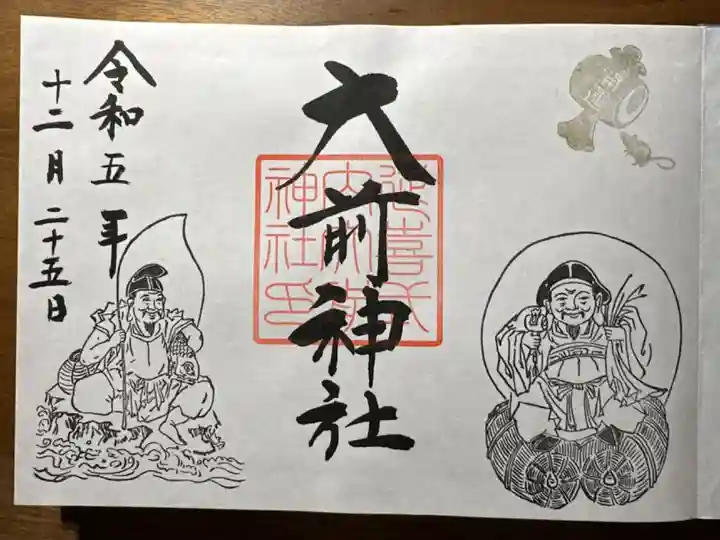 大前神社
延喜式
内大前
神社印
令和五年
十二月二十五日